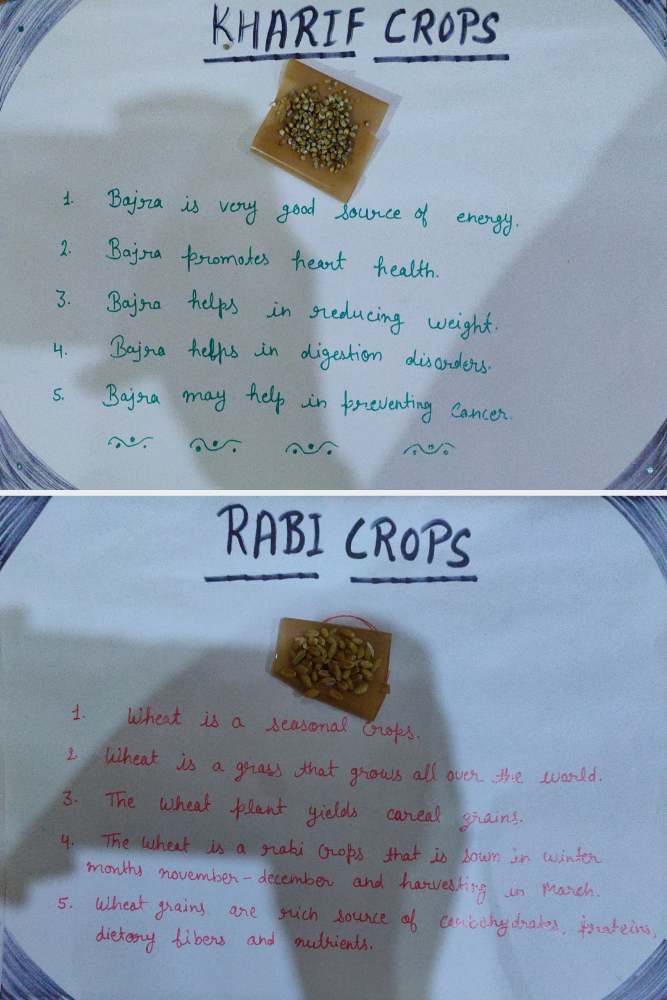 KHARIF CROPS
1. Bajra is very good source of energy.
2. Bajra promotes heart health.
3. Bajra helps in reducing weight.
4. Bajra helps in digestion disorders.
5. Bajra may help in preventing Cancer.
RABI CROPS
1. Wheat is a seasonal Crops.
2 Wheat is a grass that grows all over the world.
3. The wheat plant yields careal grains.
4. The wheat is a rabi Crops that is sown in winter
months november-december and harvesting in March.
5. Wheat grains are rich source of carbohydrates, proteins,
dietary fibers and nutrients.